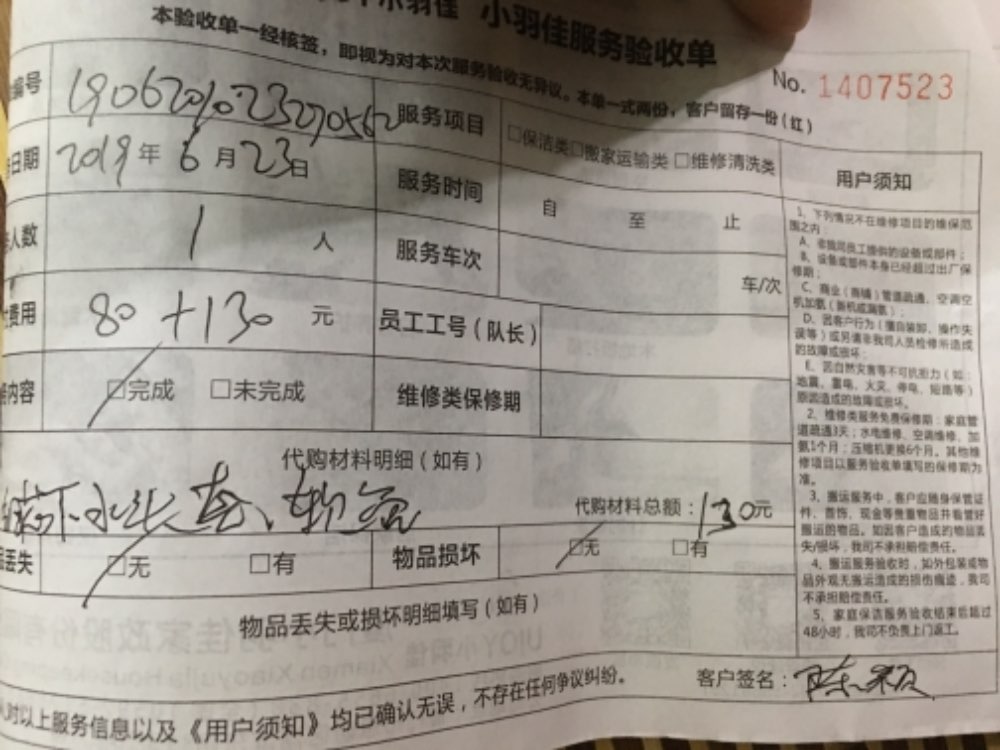 小羽佳 小羽佳服务验收单
本验收单一经核签，即视为对本次服务验收无异议。本单一式两份，客户留存一份（红）
No. 1407523
编号 服务项目 □保洁类□搬家运输类 □维修清洗类
日期 2019年6月23日 服务时间 自 至 止
人数 1 人 服务车次 车/次
费用 80+130 元 员工工号（队长）
内容 □完成 □未完成 维修类保修期
代购材料明细（如有）
下水 软管
代购材料总额：130元
丢失 □无 □有 物品损坏 □无 □有
物品丢失或损坏明细填写（如有）
客户签名：陈
对以上服务信息以及《用户须知》均已确认无误，不存在任何争议纠纷。
用户须知
1、下列情况不在维修项目的维保范
围之内：
A、非我司员工提供的设备或部件；
B、设备或部件本身已经超过出厂保
修期；
C、商业（商铺）管道疏通、空调空
机加氨（新机或漏氨）；
D、因客户行为（擅自装卸、操作失
误等）或另请非我司人员检修所造成
的故障或损坏；
E、因自然灾害等不可抗拒力（如：
地震、雷电、火灾、停电、短路等）
原因造成的故障或损坏。
2、维修类服务免费保修期：家庭管
道疏通3天；水电维修、空调维修、加
氨1个月；压缩机更换6个月。其他维
修项目以服务验收单填写的保修期为
准。
3、搬运服务中，客户应随身保管证
件、首饰、现金等贵重物品并看管好
搬运的物品。如因客户造成的物品丢
失/损坏，我司不承担赔偿责任。
4、搬运服务验收时，如外包装或物
品外观无搬运造成的损伤痕迹，我司
不承担赔偿责任。
5、家庭保洁服务验收结束后超过
48小时，我司不负责上门返工。